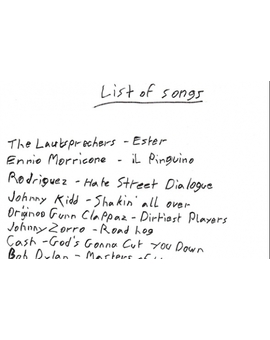 List of songs
The Lautsprechers - Ester
Ennio Morricone - iL Pinguino
Rodriguez - Hate Street Dialogue
Johnny Kidd - Shakin' all over
Originoo Gunn Clappaz - Dirtiest Players
Johnny Zorro - Road hog
Cash - God's Gonna Cut You Down
Bob Dylan - Masters